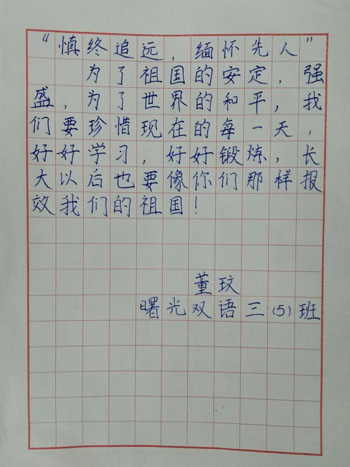 “慎终追远，缅怀先人”
为了祖国的安定，强
盛，为了世界的和平，我
们要珍惜现在的每一天，
好好学习，好好锻炼，长
大以后也要像你们那样报
效我们的祖国！
董玟
曙光双语三(5)班